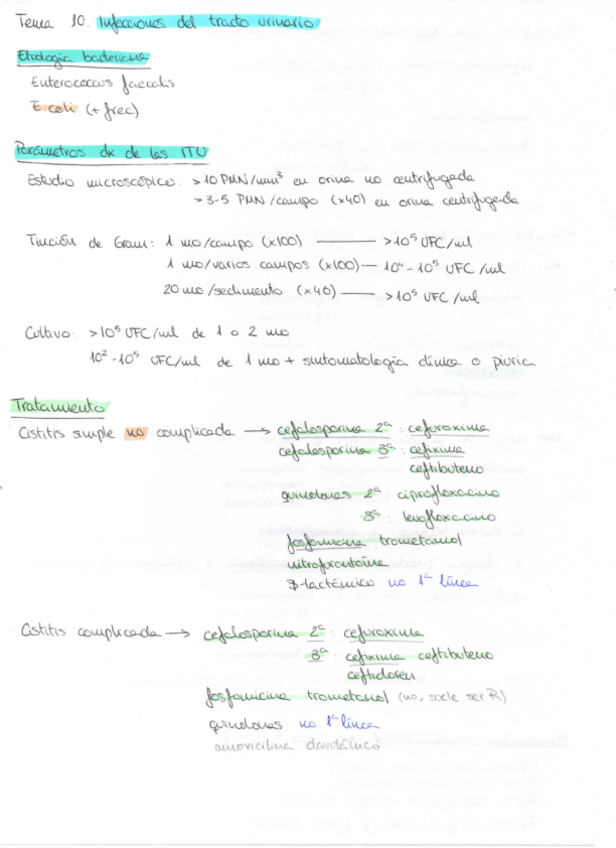 Tema 10. Infecciones del tracto urinario
Etiología bacteriana
Enterococcus faecalis
E. coli (+ frec)
Parámetros dx de las ITU
Estudio microscópico: >10 PMN/mm³ en orina no centrifugada
>3-5 PMN/campo (x40) en orina centrifugada
Tinción de Gram: 1 mo/campo (x100) —— >10⁵ UFC/ml
1 mo/varios campos (x100) — 10⁴-10⁵ UFC/ml
20 mo/sedimento (x40) —— >10⁵ UFC/ml
Cultivo: >10⁵ UFC/ml de 1 o 2 mo
10²-10⁵ UFC/ml de 1 mo + sintomatología clínica o piuria
Tratamiento
Cistitis simple no complicada → cefalosporina 2ª: cefuroxima
cefalosporina 3ª: cefixima
ceftibuteno
quinolonas 2ª: ciprofloxacino
3ª: levofloxacino
fosfomicina trometamol
nitrofurantoína
β-lactámico no 1ª línea
Cistitis complicada → cefalosporina 2ª: cefuroxima
3ª: cefixima ceftibuteno
ceftidoren
fosfomicina trometamol (no, suele ser R)
quinolonas no 1ª línea
amoxicilina clavulánico